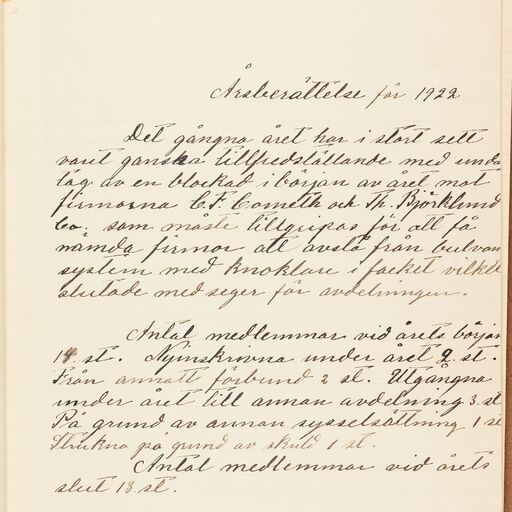 Årsberättelse för 1922
Det gångna året har i stort sett
varit ganska tillfredställande med unda
tag av en blockad i början av året mot
firmorna C. F. Cometh och Th. Björklund
Co; som måste tillgripas för att få
nämda firmor att avstå från bulvan
system med knoklare i facket vilket
slutade med seger för avdelningen.
Antal medlemmar vid årets början
14 st. Nyinskrivna under året 2 st.
Från annatt förbund 2 st. Utgångna
under året till annan avdelning 3 st
På grund av annan sysselsättning 1 st
Strukna på grund av skuld 1 st.
Antal medlemmar vid årets
slut 13 st.